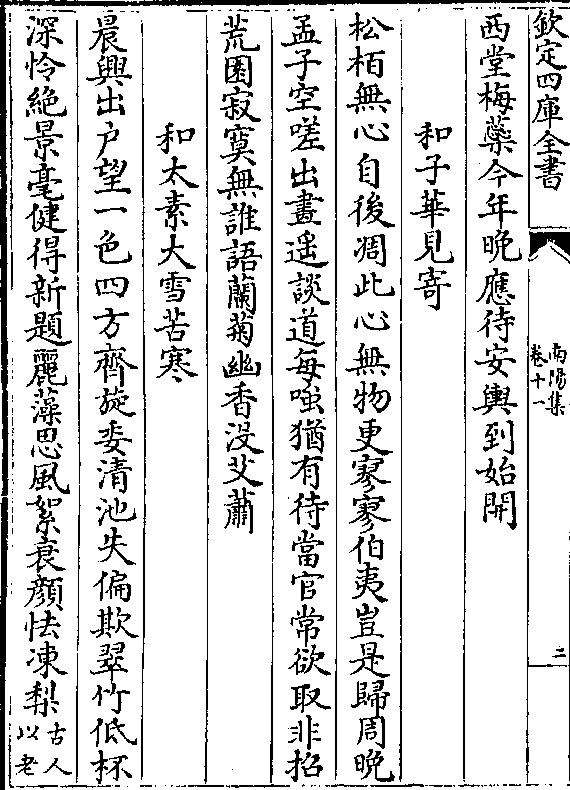 欽定四庫全書
南陽集
卷十一
二
西堂梅蘂今年晚應待安輿到始開
和子華見寄
松栢無心自後凋此心無物更寥寥伯夷豈是歸周晚
孟子空嗟出晝遥談道每嗤猶有待當官常欲取非招
荒園寂寞無誰語蘭菊幽香没艾蕭
和太素大雪苦寒
晨興出户望一色四方齊旋委清池失偏欺翠竹低杯
深怜絶景毫健得新題麗藻思風絮衰顔怯凍梨古人
以老